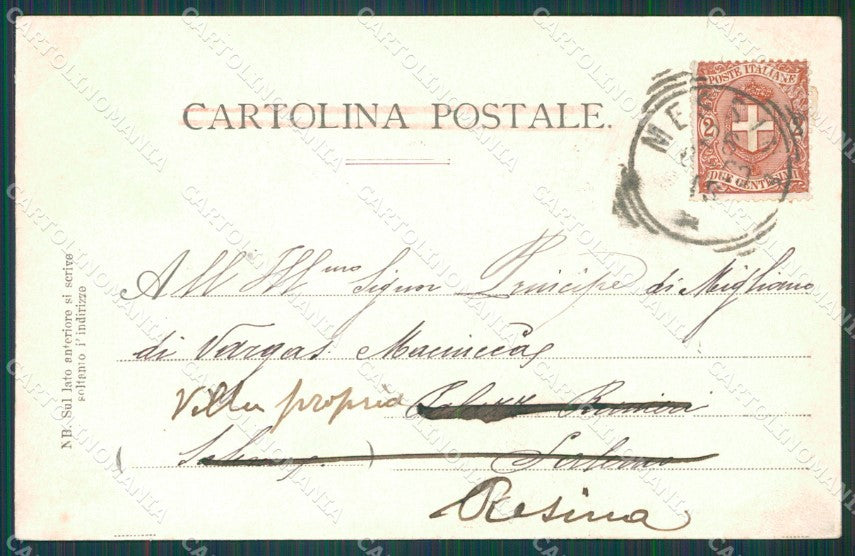 CARTOLINA POSTALE.
POSTE ITALIANE
2 2
DUE CENTESIMI
NB. Sul lato anteriore si scrive
soltanto l'indirizzo
All' Ill.mo Signor Principe di Migliano
di Vargas
Villa propria
Palermo
Resina
CARTOLINOMANIA